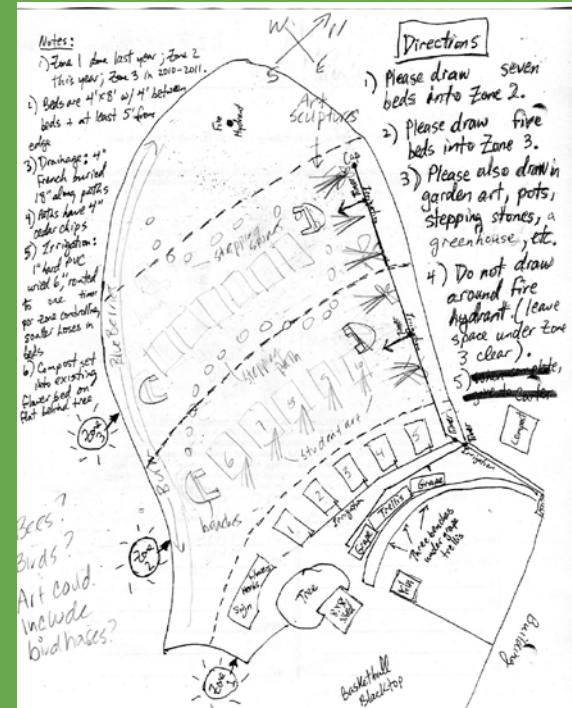 Notes:
1) Zone 1 done last year; Zone 2
this year; Zone 3 in 2010-2011.
2) Beds are 4'x8' w/ 4' between
beds + at least 5' from
edge
3) Drainage: 4"
French buried
18" along paths
4) Paths have 4"
cedar chips
5) Irrigation:
1" hard PVC
buried 6," routed
to one timer
per zone controlling
soaker hoses in
beds
6) Compost set
into existing
flower bed on
flat behind tree
Directions
1) Please draw seven
beds into Zone 2.
2) Please draw five
beds into Zone 3.
3) Please also draw in
garden art, pots,
stepping stones, a
greenhouse, etc.
4) Do not draw
around fire
hydrant (leave
space under Zone
3 clear).
5)
W
S
E
Fire
Hydrant
Art
sculptures
Cap
Timer
Irrigation
stepping stones
Blueberries
stepping path
Timer
student art
benches
6
7
8
5
6
1
2
3
4
5
Irrigation
Timer
Irrigation
Compost
Grape
Trellis
Grape
Three benches
under grape
trellis
Kiln
Building
Tree
Herbs
Sign
Zone
3
Zone
2
Zone
1
Basketball
Blacktop
Bees?
Birds?
Art could
include
birdhases?